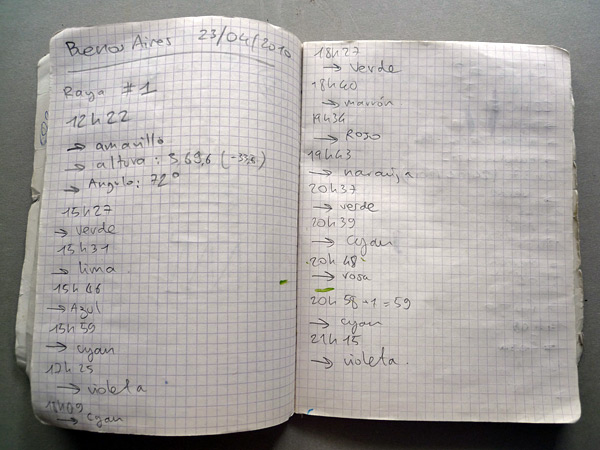 Buenos Aires 23/04/2010
Raya #1
12h22
→ amarillo
→ altura: 369,6 (-33,6)
→ Angulo: 72°
15h27
→ verde
15h31
→ lima
15h46
→ Azul
15h59
→ cyan
17h25
→ violeta
18h09
→ cyan
18h27
→ verde
18h40
→ marrón
19h34
→ Rojo
19h43
→ naranja
20h37
→ verde
20h39
→ cyan
20h48
→ rosa
20h58+1=59
→ cyan
21h15
→ violeta.